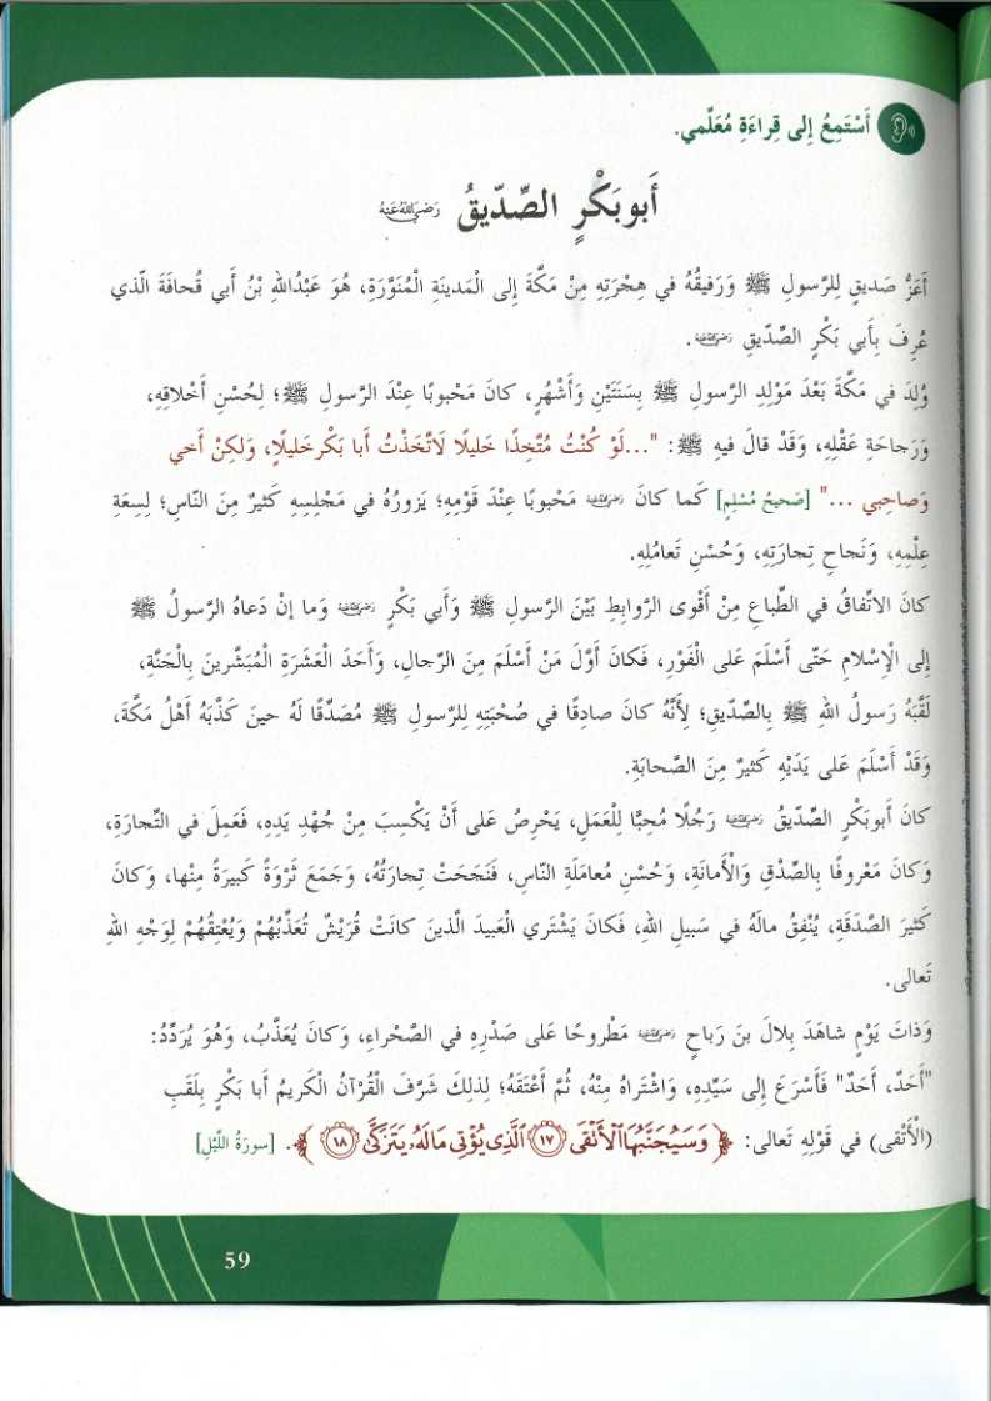 أَسْتَمِعُ إِلى قِراءَةِ مُعَلِّمي.
أَبو بَكْرٍ الصِّدّيقُ رَضِيَ اللهُ عَنْهُ
أَعَزُّ صَديقٍ لِلرَّسولِ ﷺ وَرَفيقُهُ في هِجْرَتِهِ مِنْ مَكَّةَ إِلى الْمَدينَةِ الْمُنَوَّرَةِ، هُوَ عَبْدُاللهِ بْنُ أَبي قُحافَةَ الَّذي
عُرِفَ بِأَبي بَكْرٍ الصِّدّيقِ رَضِيَ اللهُ عَنْهُ.
وُلِدَ في مَكَّةَ بَعْدَ مَوْلِدِ الرَّسولِ ﷺ بِسَنَتَيْنِ وَأَشْهُرٍ، كانَ مَحْبوبًا عِنْدَ الرَّسولِ ﷺ؛ لِحُسْنِ أَخْلاقِهِ،
وَرَجاحَةِ عَقْلِهِ، وَقَدْ قالَ فيهِ ﷺ: "...لَوْ كُنْتُ مُتَّخِذًا خَليلًا لَاتَّخَذْتُ أَبا بَكْرٍ خَليلًا، وَلكِنْ أَخي
وَصاحِبي ..." [صَحيحُ مُسْلِمٍ] كَما كانَ رَضِيَ اللهُ عَنْهُ مَحْبوبًا عِنْدَ قَوْمِهِ؛ يَزورُهُ في مَجْلِسِهِ كَثيرٌ مِنَ النّاسِ؛ لِسِعَةِ
عِلْمِهِ، وَنَجاحِ تِجارَتِهِ، وَحُسْنِ تَعامُلِهِ.
كانَ الاتِّفاقُ في الطِّباعِ مِنْ أَقْوى الرَّوابِطِ بَيْنَ الرَّسولِ ﷺ وَأَبي بَكْرٍ رَضِيَ اللهُ عَنْهُ وَما إِنْ دَعاهُ الرَّسولُ ﷺ
إِلى الْإِسْلامِ حَتّى أَسْلَمَ عَلى الْفَوْرِ، فَكانَ أَوَّلَ مَنْ أَسْلَمَ مِنَ الرِّجالِ، وَأَحَدَ الْعَشَرَةِ الْمُبَشَّرينَ بِالْجَنَّةِ،
لَقَّبَهُ رَسولُ اللهِ ﷺ بِالصِّدّيقِ؛ لِأَنَّهُ كانَ صادِقًا في صُحْبَتِهِ لِلرَّسولِ ﷺ مُصَدِّقًا لَهُ حينَ كَذَّبَهُ أَهْلُ مَكَّةَ،
وَقَدْ أَسْلَمَ عَلى يَدَيْهِ كَثيرٌ مِنَ الصَّحابَةِ.
كانَ أَبو بَكْرٍ الصِّدّيقُ رَضِيَ اللهُ عَنْهُ رَجُلًا مُحِبًّا لِلْعَمَلِ، يَحْرِصُ عَلى أَنْ يَكْسِبَ مِنْ جُهْدِ يَدِهِ، فَعَمِلَ في التِّجارَةِ،
وَكانَ مَعْروفًا بِالصِّدْقِ وَالْأَمانَةِ، وَحُسْنِ مُعامَلَةِ النّاسِ، فَنَجَحَتْ تِجارَتُهُ، وَجَمَعَ ثَرْوَةً كَبيرَةً مِنْها، وَكانَ
كَثيرَ الصَّدَقَةِ، يُنْفِقُ مالَهُ في سَبيلِ اللهِ، فَكانَ يَشْتَري الْعَبيدَ الَّذينَ كانَتْ قُرَيْشٌ تُعَذِّبُهُمْ وَيُعْتِقُهُمْ لِوَجْهِ اللهِ
تَعالى.
وَذاتَ يَوْمٍ شاهَدَ بِلالَ بنَ رَباحٍ رَضِيَ اللهُ عَنْهُ مَطْروحًا عَلى صَدْرِهِ في الصَّحْراءِ، وَكانَ يُعَذَّبُ، وَهُوَ يُرَدِّدُ:
"أَحَدٌ، أَحَدٌ" فَأَسْرَعَ إِلى سَيِّدِهِ، وَاشْتَراهُ مِنْهُ، ثُمَّ أَعْتَقَهُ؛ لِذلِكَ شَرَّفَ الْقُرْآنُ الْكَريمُ أَبا بَكْرٍ بِلَقَبِ
(الْأَتْقى) في قَوْلِهِ تَعالى: ﴿ وَسَيُجَنَّبُهَا ٱلْأَتْقَى ١٧ ٱلَّذِى يُؤْتِى مَالَهُۥ يَتَزَكَّىٰ ١٨ ﴾. [سورَةُ اللَّيْلِ]
59